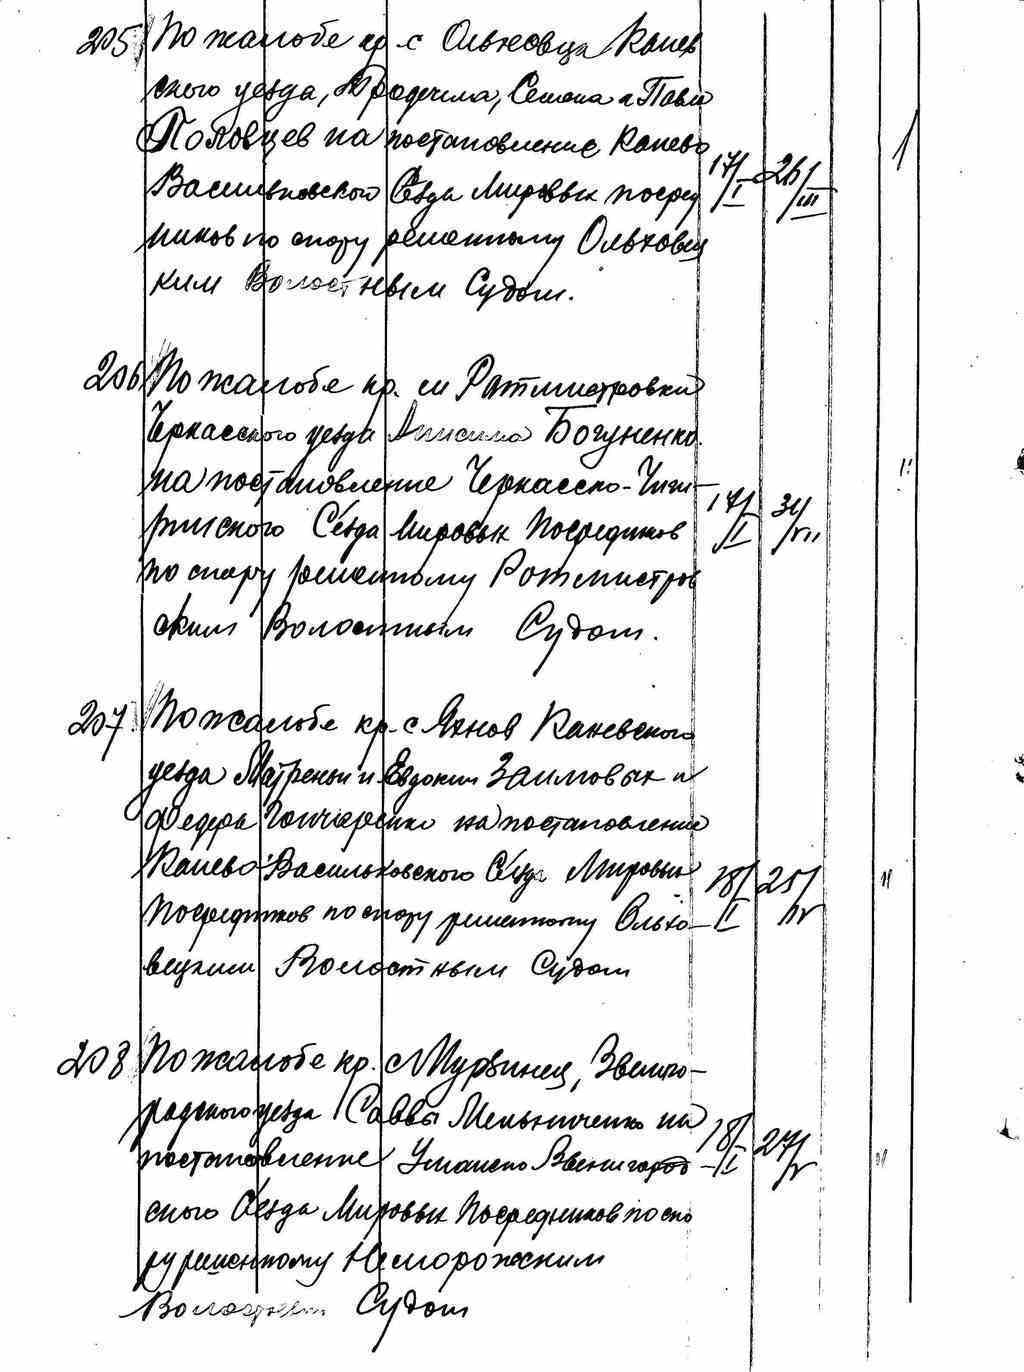 205 По жалобе кр. с Ольховца Канев
ского уезда, Семена и Павла
Половцев на постановление Канево
Васильковского Сезда Мировых посред 17/I 26/III
ников по спору решенному Ольховец
ким Волостным Судом.
206 По жалобе кр. м Ратмистровки
Черкасского уезда Анисима Богуненко
на постановление Черкасско-Чиги-
ринского Сезда Мировых Посредников 17/I 31/VII
по спору решенному Ротмистров
ским Волостным Судом.
207 По жалобе кр. с Яхнов Каневского
уезда Матрены и Евдокии Заимовых и
Федора Гончаренко на постановление
Канево-Васильковского Сезда Мировых 18/I 25/IV
Посредников по спору решенному Ольхо-
вецким Волостным Судом
208 По жалобе кр. с Мурзинец, Звениго-
родского уезда Саввы Мельниченко на
постановление Уманско Звенигород- 18/I 27/V
ского Сезда Мировых Посредников по спо
ру решенному Неморожским
Волостным Судом